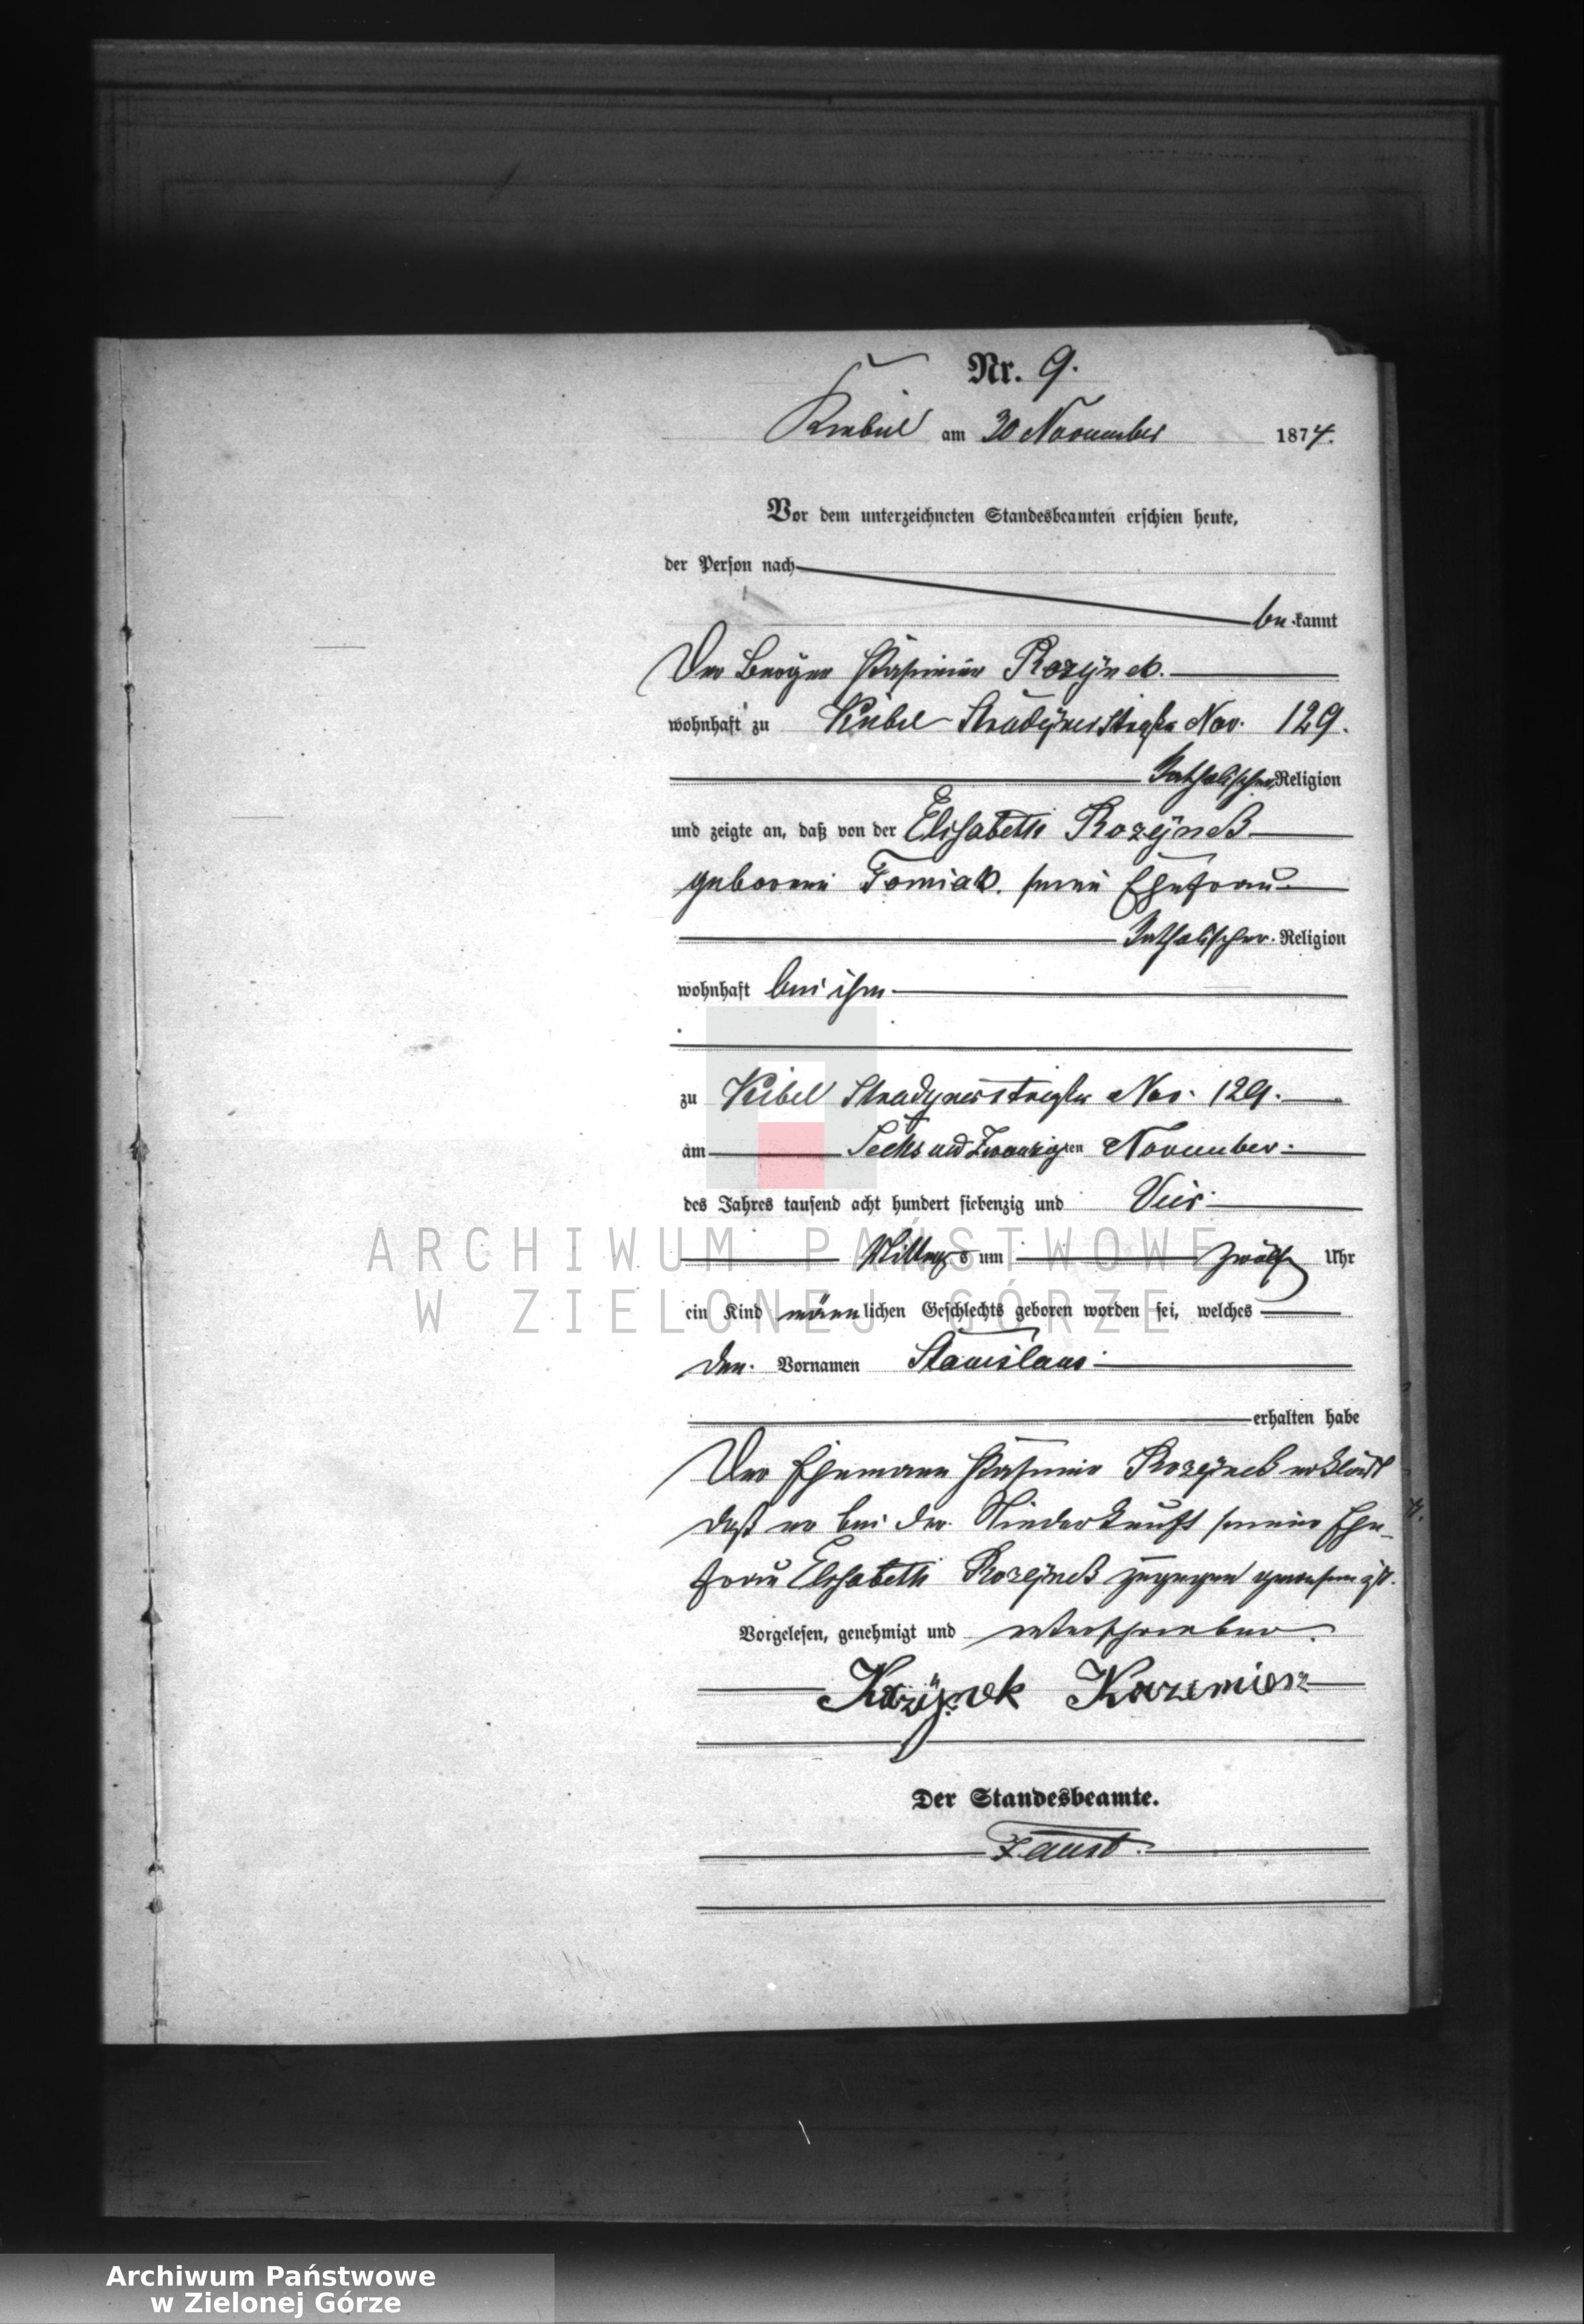 Nr. 9.
Kiebel am 30 November 1874.
Vor dem unterzeichneten Standesbeamten erschien heute,
der Person nach
be kannt
Der Kasimir Rozynek.
wohnhaft zu Kiebel No. 129.
katholischer Religion
und zeigte an, daß von der Elisabeth Rozynek
geborene Tomiak. seine Ehefrau
katholischer Religion
wohnhaft bei ihm
zu Kiebel No. 129.
am Sechs und Zwanzigsten November
des Jahres tausend acht hundert siebenzig und Vier
Mittags um zwölf Uhr
ein Kind männlichen Geschlechts geboren worden sei, welches
den Vornamen Stanislaus
erhalten habe
Der Ehemann Kasimir Rozynek erklärt
daß er bei der Niederkunft seiner Ehe-
frau Elisabeth Rozynek zugegen gewesen ist.
Vorgelesen, genehmigt und unterschrieben.
Kazmierz
Der Standesbeamte.
Faust.
ARCHIWUM PAŃSTWOWE
W ZIELONEJ GÓRZE
Archiwum Państwowe
w Zielonej Górze